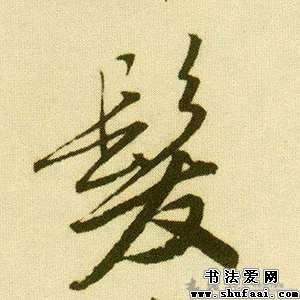 髮
书法爱网
www.shufaai.com